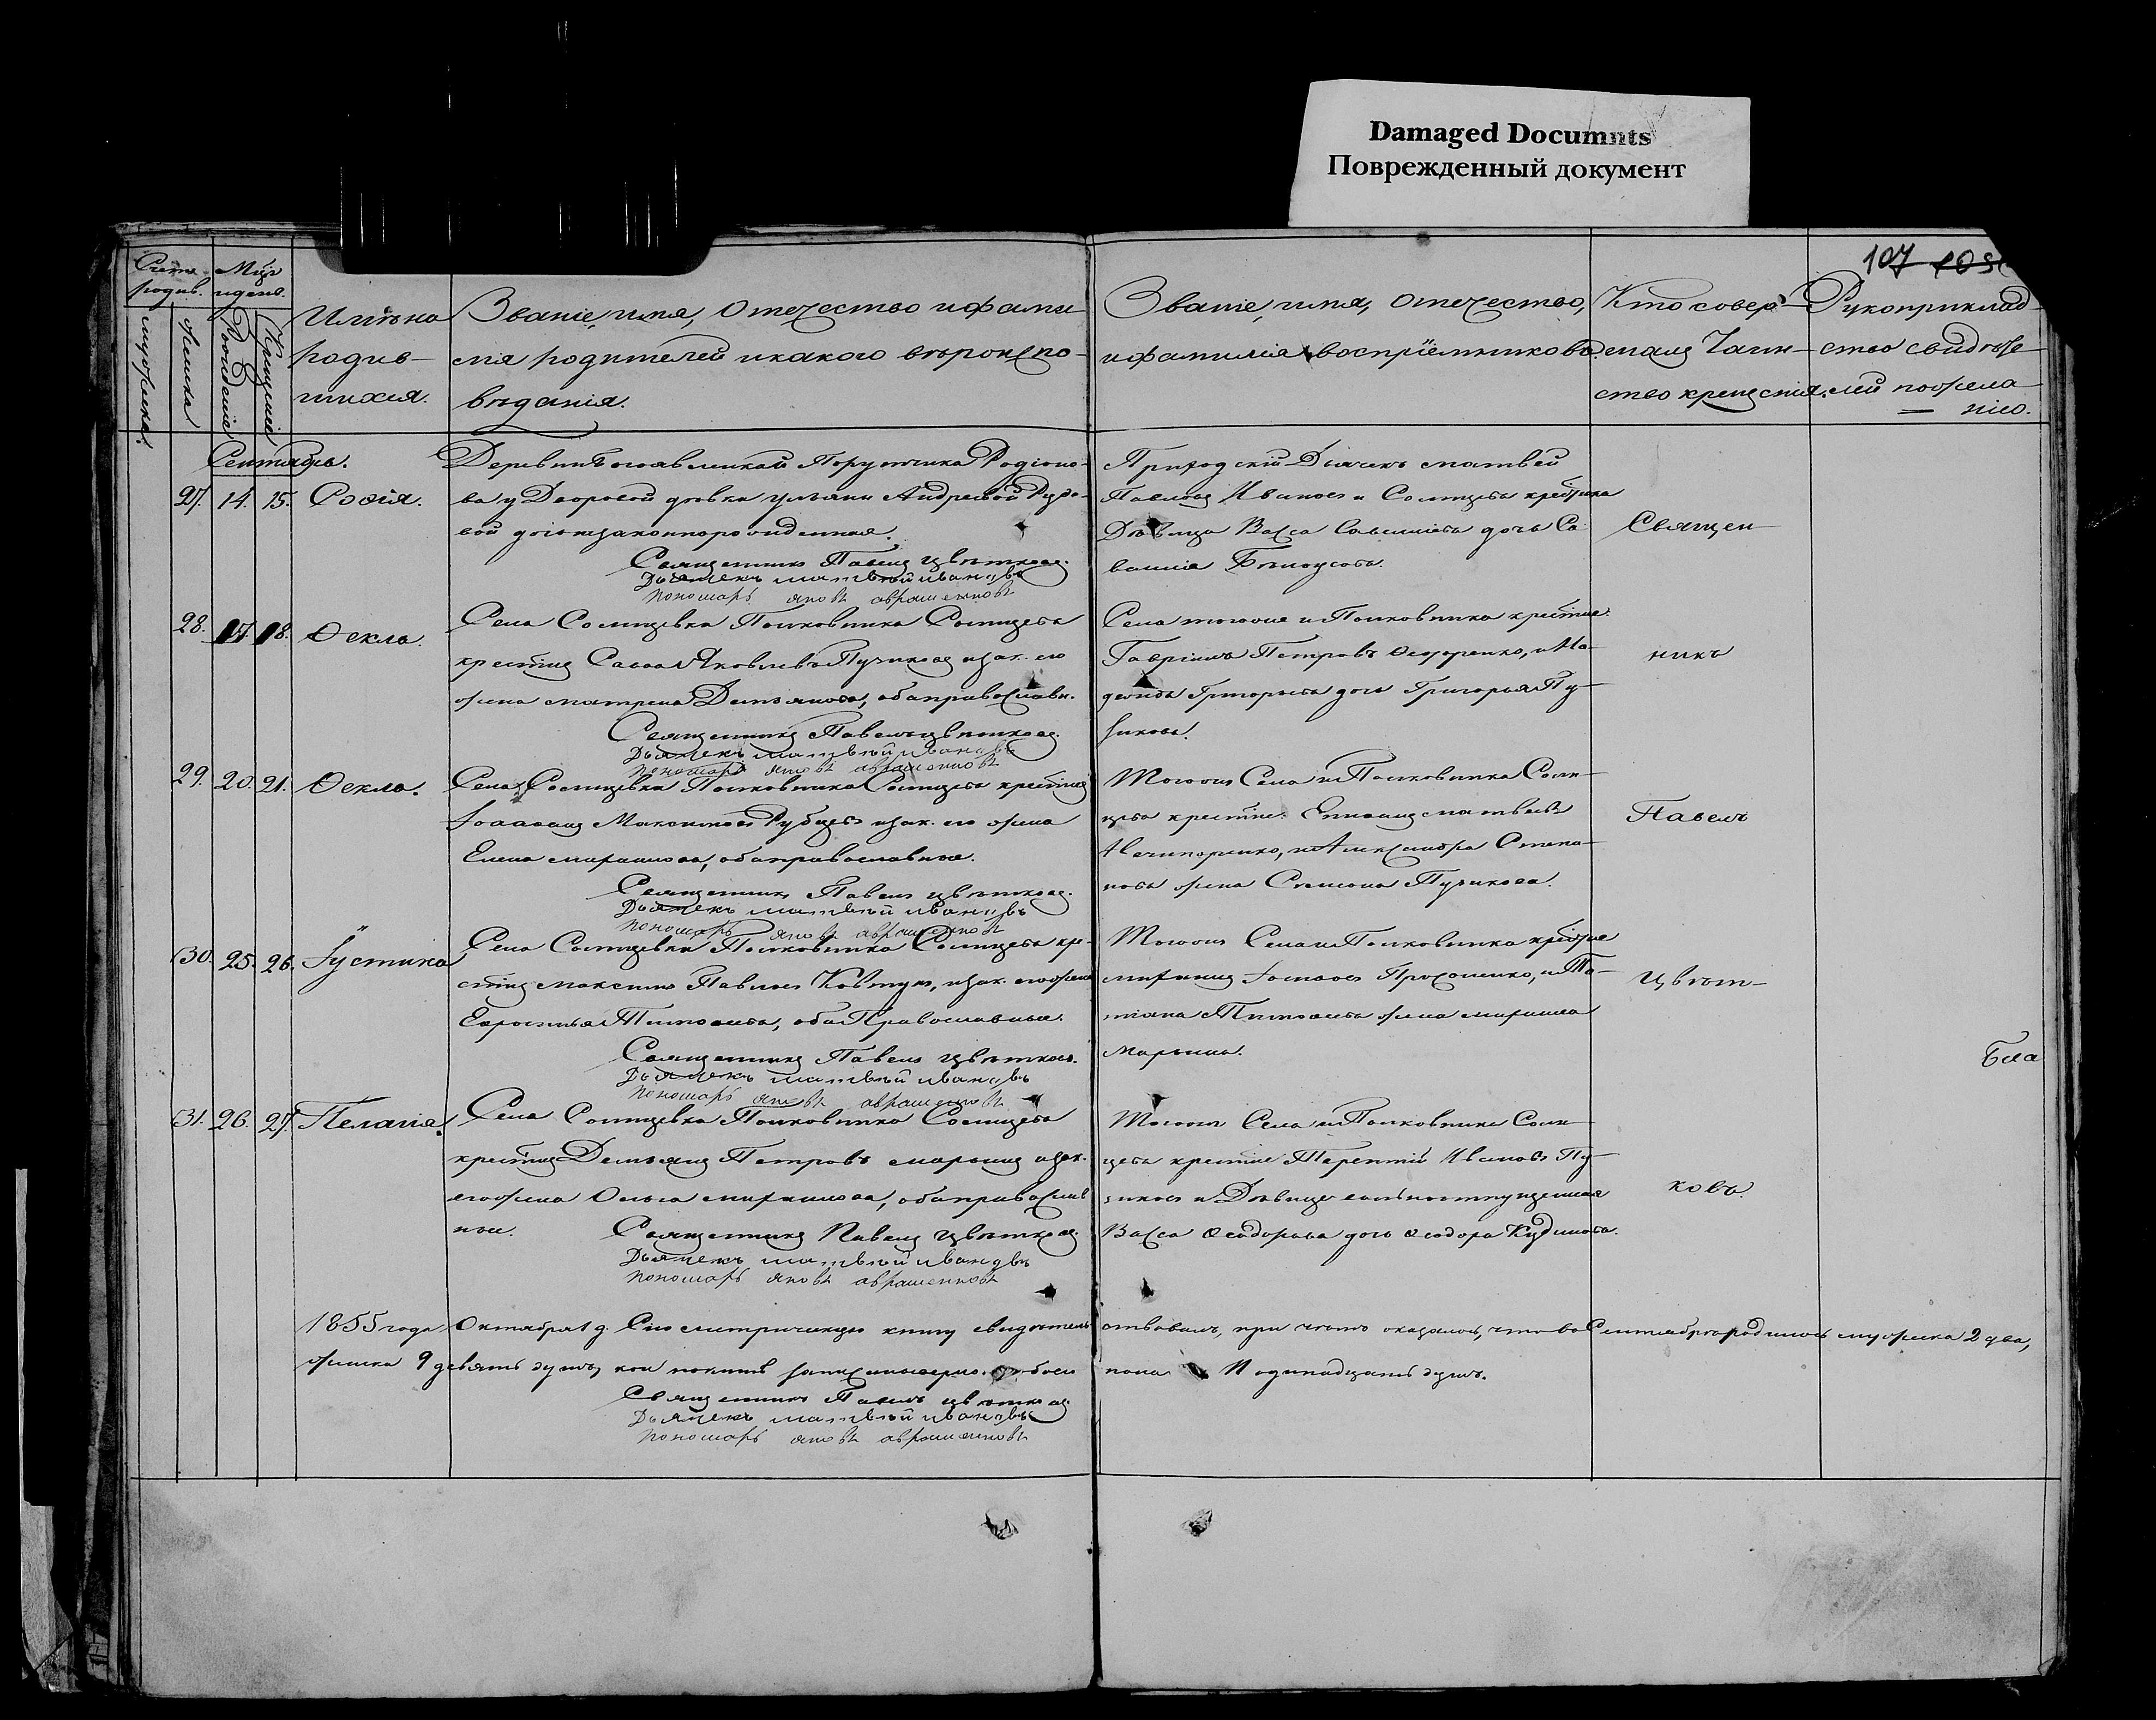 Damaged Documnts
Поврежденный документ
107
Счетъ родив.
Мѣц и день.
мужеска.
женска
Рожденіе
Крещеніе
Имѣна
родив-
шихся.
Званіе, имя, отчество и фами
лія родителей и какого вѣроиспо-
вѣданія.
Званіе, имя, отчество,
и фамилія воспріемниковъ.
Кто совер-
шалъ Таин-
ство крещенія.
Рукоприклад-
ство свидѣте-
лей по жела-
нію.
Сентябрь.
27. 14. 15. Софія.
Деревни Богоявленкой Поручика Родіоно-
ва у Дворовой дѣвки Ульяни Андреевой
вой дочь незаконнорожденная.
Священникъ Павелъ Цвѣтковъ.
Дьячекъ Матвѣй Ивановъ
Пономарь Яковъ Авраменковъ
Приходскій Дьячекъ Матвей
Павловъ Ивановъ и Солнцева крестянка
Дѣвица Васса Савелиева дочь Са-
велія Бѣлоусова.
Священ-
28. 17. 18. Ѳекла.
Села Солнцевки Полковника Солнцева
крестян Савва Яковлевъ Пузиковъ и зак. его
жена Матрена Демьянова, оба православн.
Священникъ Павелъ Цвѣтковъ.
Дьячекъ Матвѣй Ивановъ
Пономарь Яковъ Авраменковъ
Села тогоже и Полковника крестяне
Гавріилъ Петровъ Федоренко, и На-
дежда Григорьева дочь Григорья Пу-
зикова.
никъ
29. 20. 21. Ѳекла.
Села Солнцевки Полковника Солнцева крестян
Максимовъ Рубцовъ и зак. его жена
Елена Михайлова, оба православные.
Священникъ Павелъ Цвѣтковъ.
Дьячекъ Матвѣй Ивановъ
Пономарь Яковъ Авраменковъ
Тогоже Села и Полковника Солн-
цева крестяне Матвеевъ
Нечипоренко, и Александра Степа-
нова жена Симеона Пузикова.
Павелъ
30. 25. 26. Іустина
Села Солнцевки Полковника Солнцева кре-
стян Максимъ Павловъ Ковтунъ, и зак. его жена
Евросинья Тимофеева, оба Православные.
Священникъ Павелъ Цвѣтковъ.
Дьячекъ Матвѣй Ивановъ
Пономарь Яковъ Авраменковъ
Тогоже Села и Полковника крестяне
Михаилъ Прохоленко, и Та-
тіана Тимофеева жена Михаила
Марьина.
Цвѣт-
Бла
31. 26. 27. Пелагія.
Села Солнцевки Полковника Солнцева
крестян Демьянъ Петровъ Марьинъ и зак.
его жена Ольга Михайлова, оба православ
ные.
Священникъ Павелъ Цвѣтковъ.
Дьячекъ Матвѣй Ивановъ
Пономарь Яковъ Авраменковъ
Тогоже Села и Полковника Солн-
цева крестяне Терентій Ивановъ Пу-
зиковъ и Дѣвица вольноотпущенная
Васса Ѳеодорова дочь Ѳеодора Кудинова.
ковъ.
1855 года Октября 1 д. Сію метрическую книгу свидетель ствовалъ, при чемъ оказалось, что во Сентябрѣ родилось мужеска 2 два,
женска 9 девять душъ, кои записаны верно. обоего пола 11 одинадцать душъ.
Священникъ Павелъ Цвѣтковъ
Дьячекъ Матвѣй Ивановъ
Пономарь Яковъ Авраменковъ